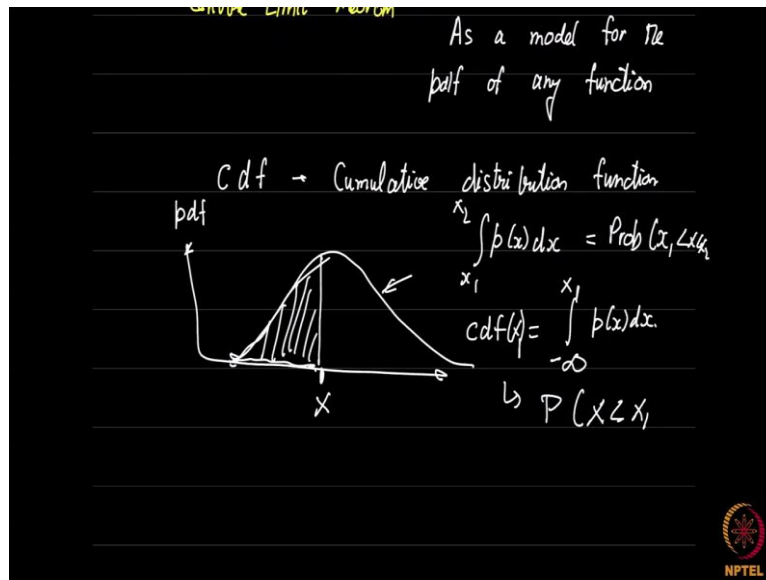 Limit
As a model for the
pdf of any function
Cdf → Cumulative distribution function
pdf
x₂
∫ p(x)dx = Prob(x₁<x<x₂
x₁
x₁
cdf(x₁) = ∫ p(x)dx.
-∞
↳ P(X<x₁
X
NPTEL